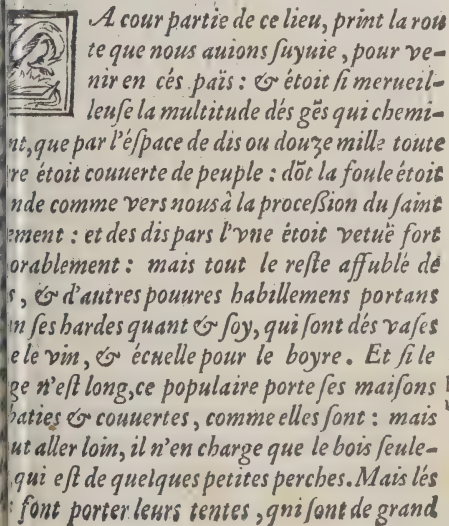 LA cour partie de ce lieu, print la rou
te que nous auions ſuyuie, pour ve-
nir en cés païs: & étoit ſi merueil-
leuſe la multitude dés gẽs qui chemi-
nt, que par l'éſpace de dis ou douze mille toute
re étoit couuerte de peuple: dõt la foule étoit
nde comme vers nous à la proceßion du ſaint
ement: et des dis pars l'vne étoit vetuë fort
orablement: mais tout le reſte affublé dé
s, & d'autres pouures habillemens portans
n ſes hardes quant & ſoy, qui ſont dés vaſes
e le vin, & écuelle pour le boyre. Et ſi le
ge n'eſt long, ce populaire porte ſes maiſons
baties & couuertes, comme elles ſont: mais
ut aller loin, il n'en charge que le bois ſeule-
, qui eſt de quelques petites perches. Mais lés
ſont porter leurs tentes, qni ſont de grand